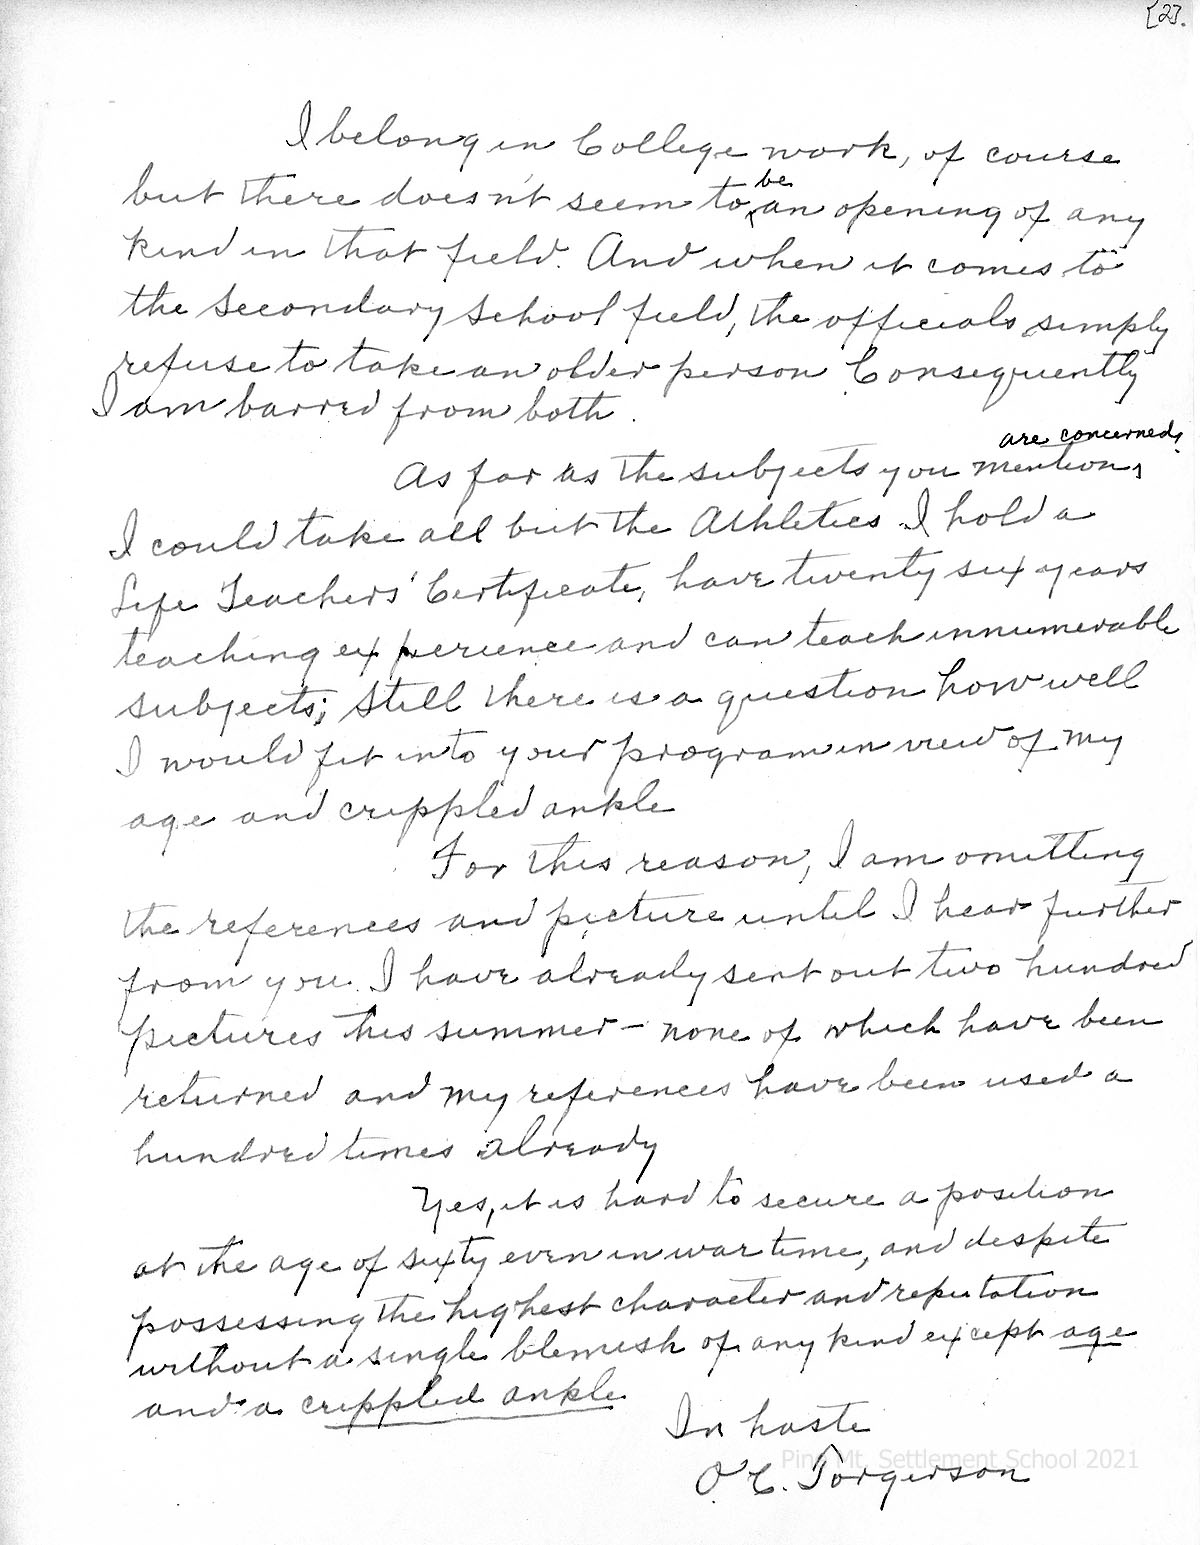 [2].
I belong in College work, of course
but there doesn't seem to be an opening of any
kind in that field. And when it comes to
the Secondary School field, the officials simply
refuse to take an older person Consequently
I am barred from both.
As far as the subjects you mention, are concerned,
I could take all but the Athletics. I hold a
Life Teachers' Certificate, have twenty six years
teaching experience and can teach innumerable
subjects; Still there is a question how well
I would fit into your program in view of my
age and crippled ankle
For this reason, I am omitting
the references and picture until I hear further
from you. I have already sent out two hundred
pictures this summer – none of which have been
returned and my references have been used a
hundred times already
Yes, it is hard to secure a position
at the age of sixty even in war time, and despite
possessing the highest character and reputation
without a single blemish of any kind except age
and a crippled ankle.
In haste
Pine Mt. Settlement School 2021
O. C. Torgerson